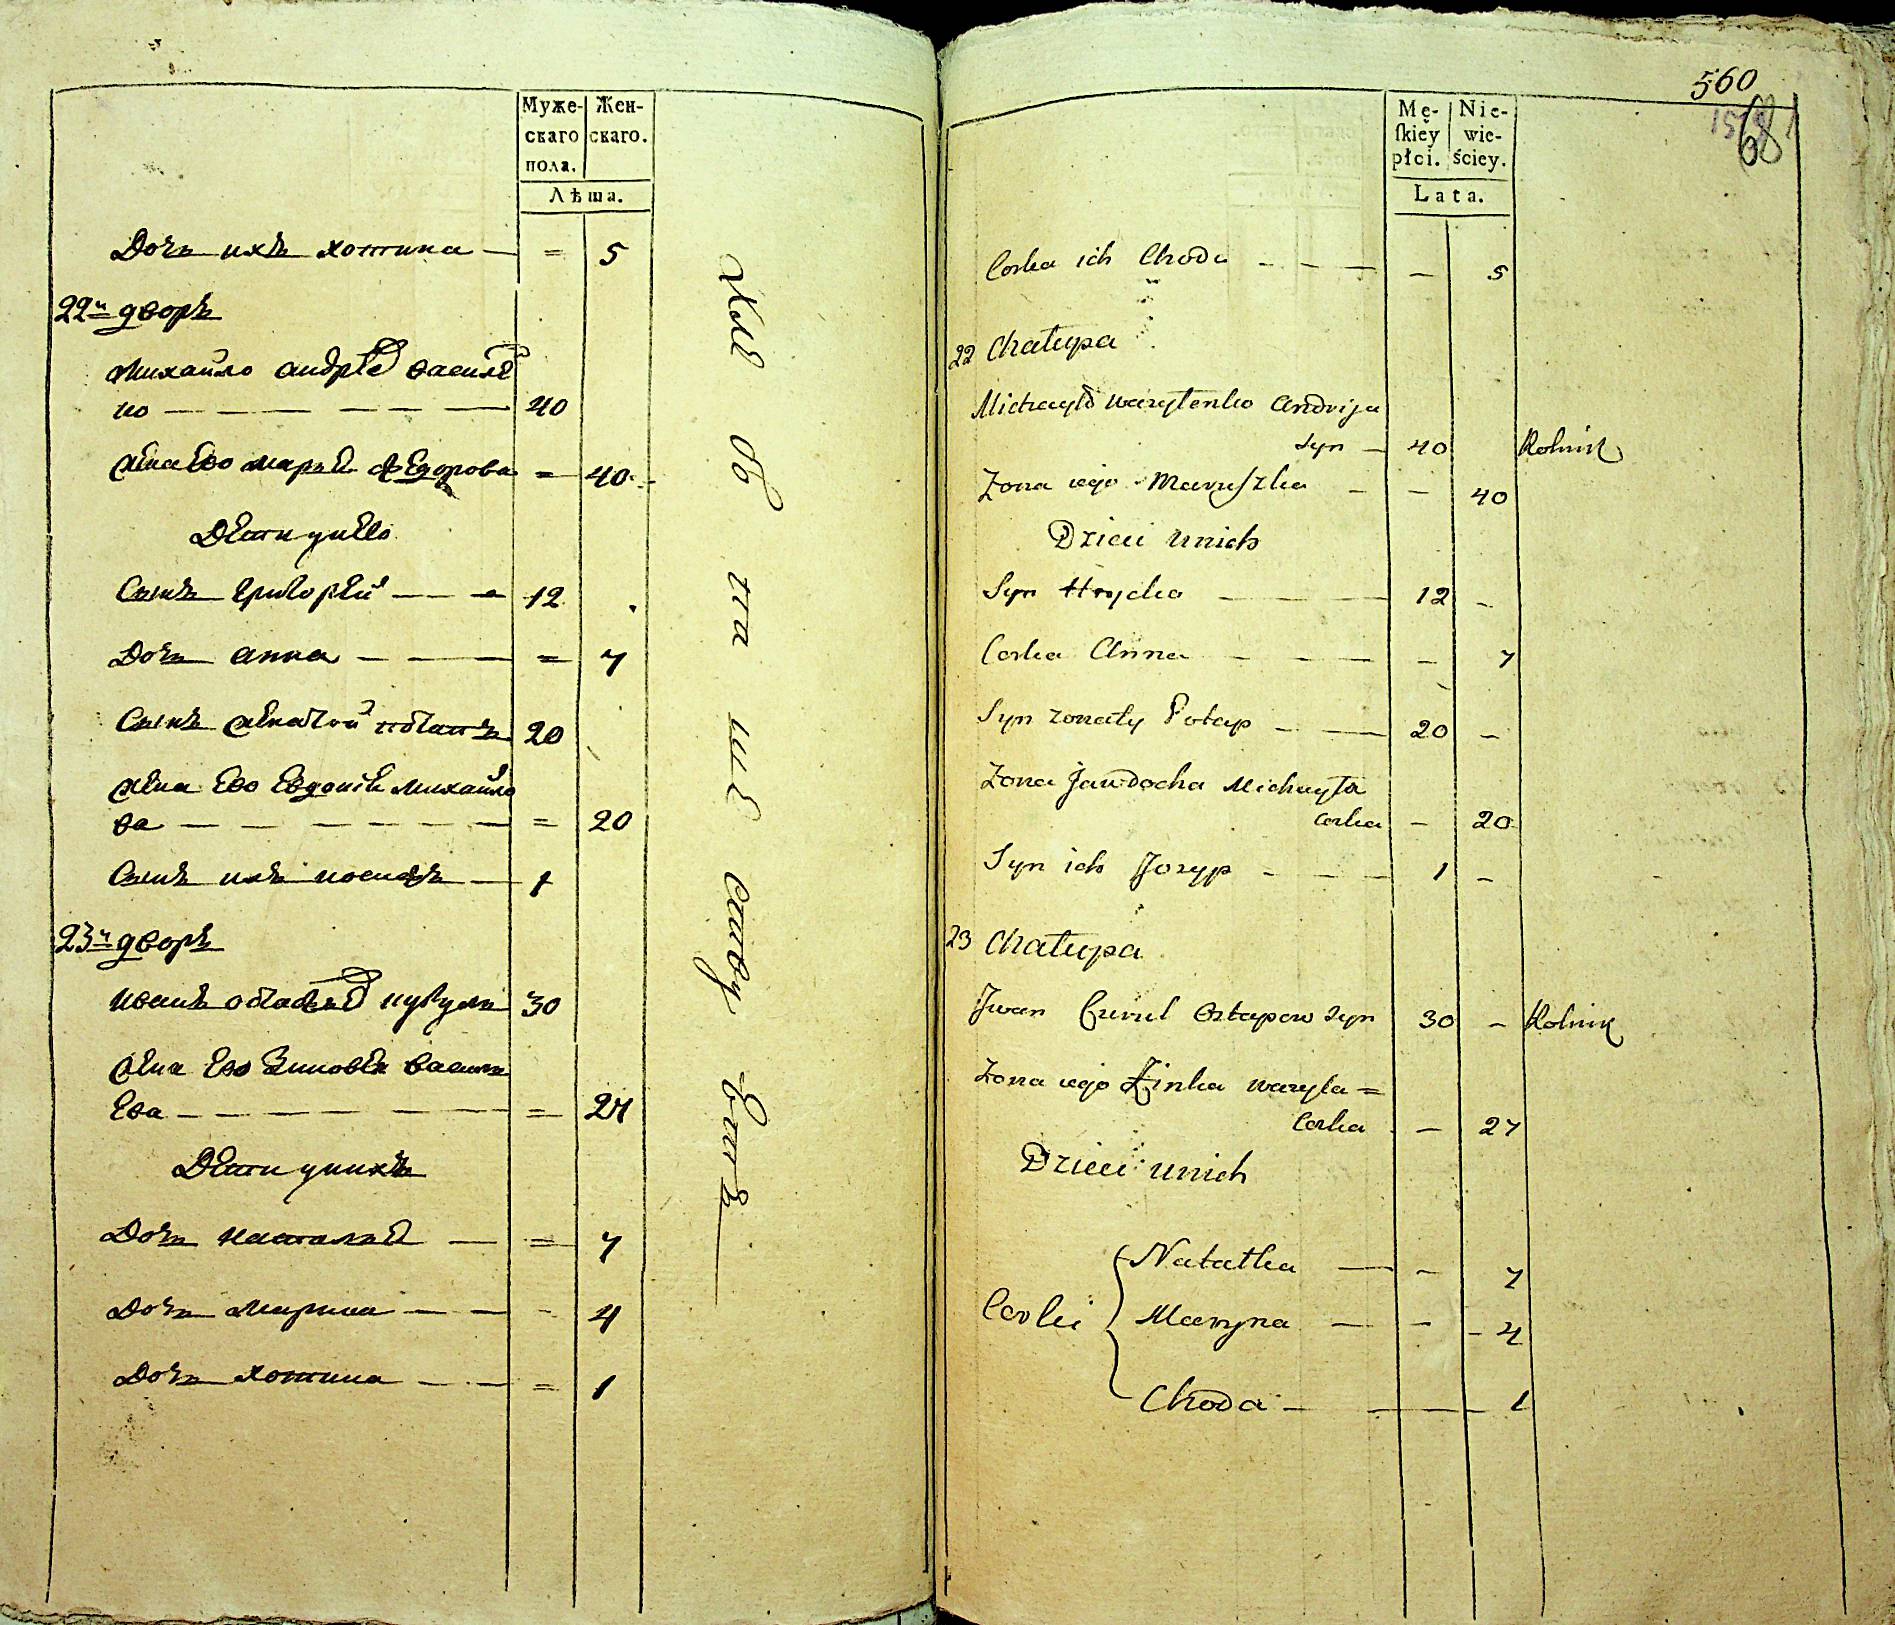 Муже-
скаго
пола.
Жен-
скаго.
Лѣта.
Дочь ихъ хотина — = 5
22й дворъ
Михайло андрѣев василе
но — — — — — 40
жена Ево марья Федорова = 40
Дети у нево
Сынъ григорей — — — 12
Дочь анна — — — = 7
Сынъ женатой потапъ 20
жена Ево Евдокія михайло
ва — — — — — = 20
Сынъ ихъ иосифъ — 1
23й дворъ
иванъ остапьев цуруль 30
жена Ево Зиновья василь
Ева — — — — — = 27
Дети у нихъ
Дочь наталья — = 7
Дочь марина — — - 4
Дочь хотина — — = 1
560
68
Mę-
skiey
płci.
Nie-
wie-
ściey.
Lata.
Corka ich Choda - - — — 5
22 Chałupa
Michayło Wasylenko Andrija
Syn — 40 Rolnik
Zona iego Maruszka — — 40
Dzieci u nich
Syn Hrycko — — — 12 -
Corka Anna - - — — 7
Syn zonaty Potap - — 20 -
Zona Jawdocha Michayła
Corka — 20
Syn ich Jozyp - - — 1 -
23 Chałupa
Jwan Curul Ostapow Syn 30 - Rolnik
Zona iego Zinka wasyla =
Corka — 27
Dzieci u nich
Corki
Natalka — - 7
Maryna — - - 4
Choda - — — 1